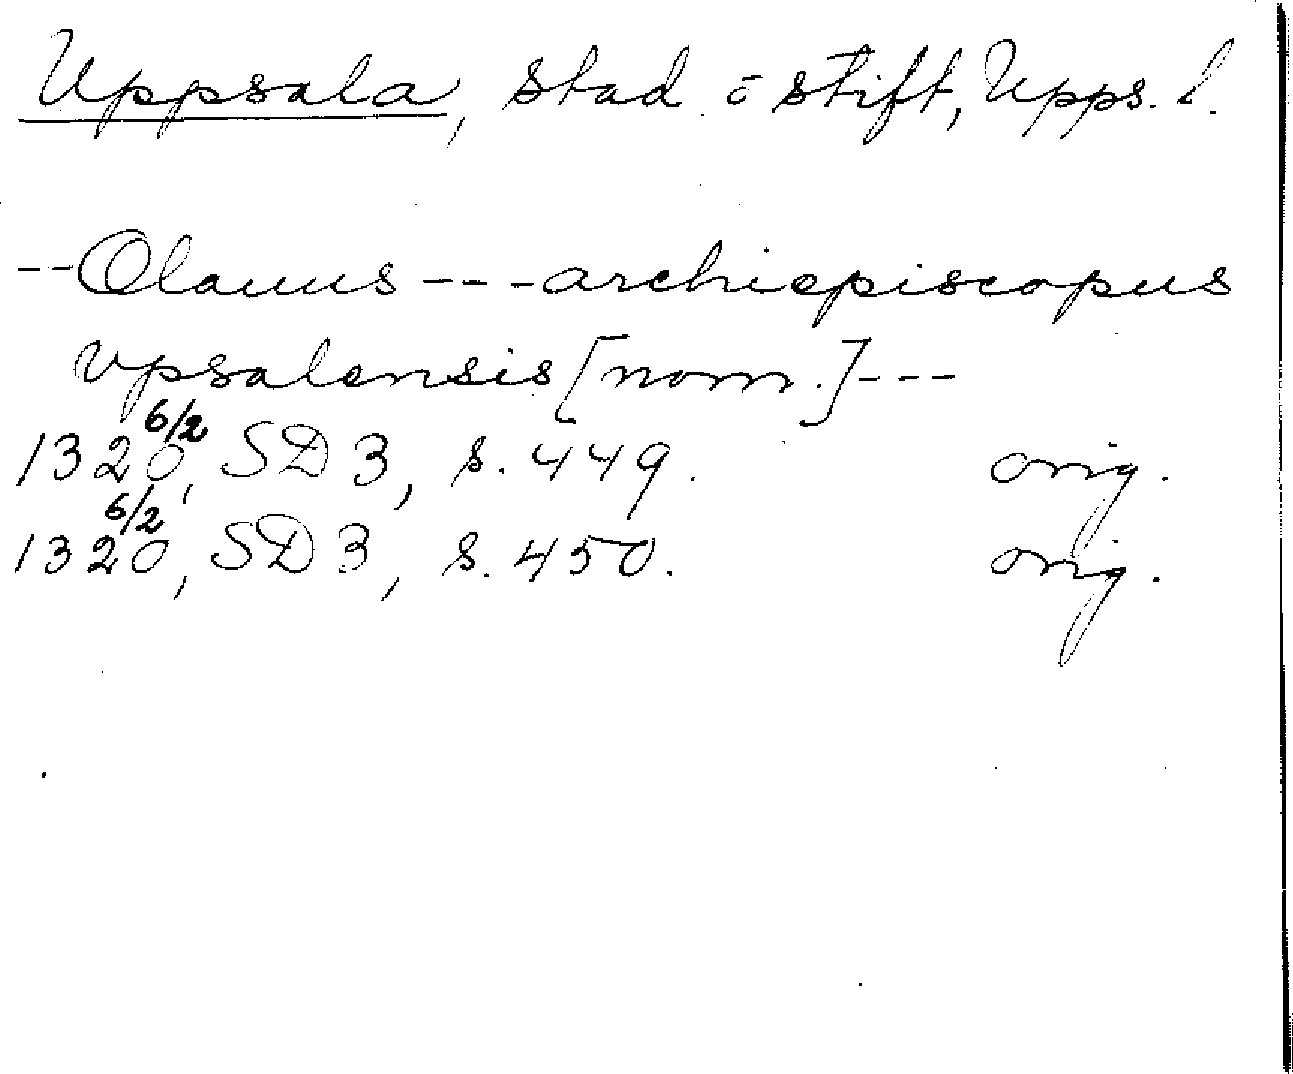 Uppsala, stad o stift, Upps. l.
-- Olauus --- archiepiscopus
vpsalensis [nom.] ---
1320 6/2, SD 3, s. 449. orig.
1320 6/2, SD 3, s. 450. orig.